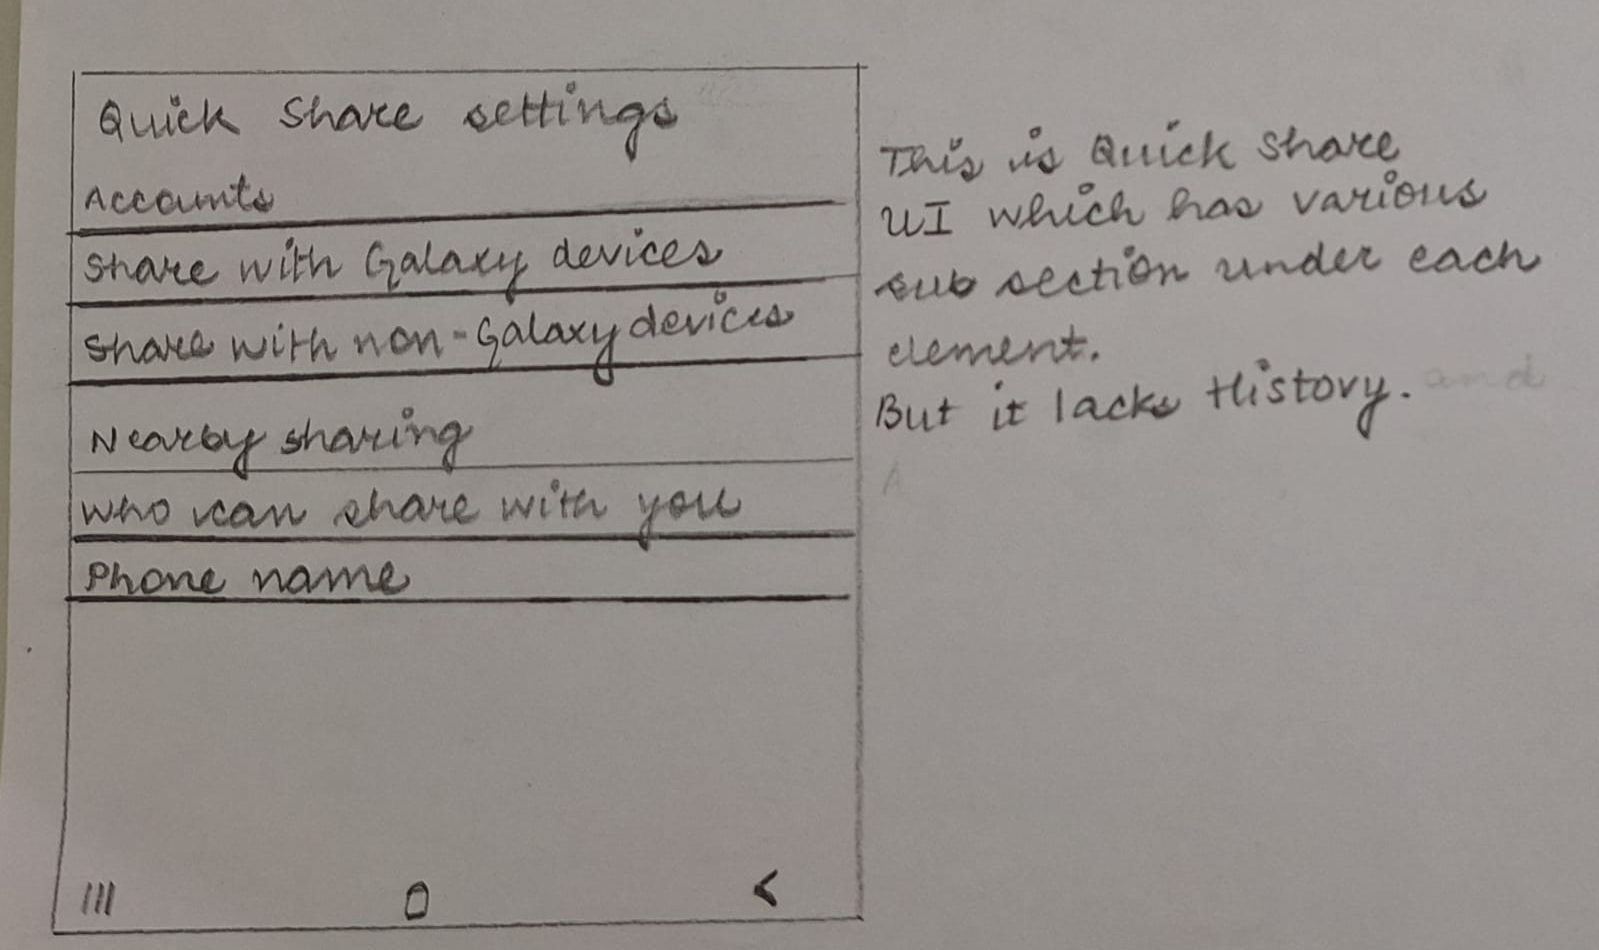 Quick Share settings
Accounts
Share with Galaxy devices
Share with non-Galaxy devices
Nearby sharing
Who can share with you
Phone name
This is Quick Share
UI which has various
sub section under each
element.
But it lacks History. and